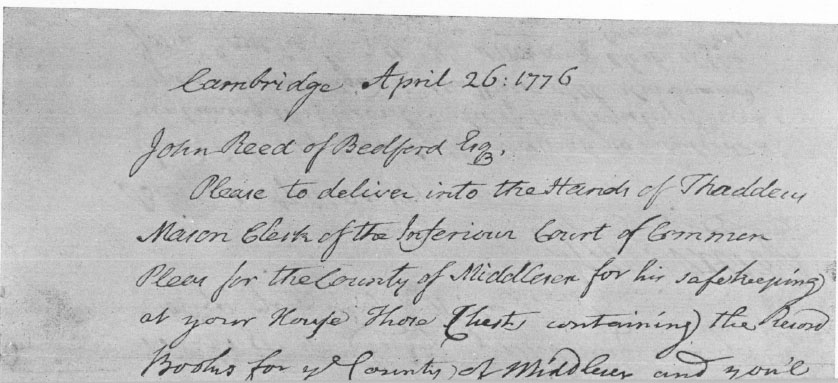 Cambridge April 26: 1776
John Reed of Bedford Esq.
Please to deliver into the Hands of Thaddeus
Mason Clerk of the Inferiour Court of Common
Pleas for the County of Middlesex for his safe keeping
at your House Those Chests containing the Record
Books for ye County of Middlesex and you'l